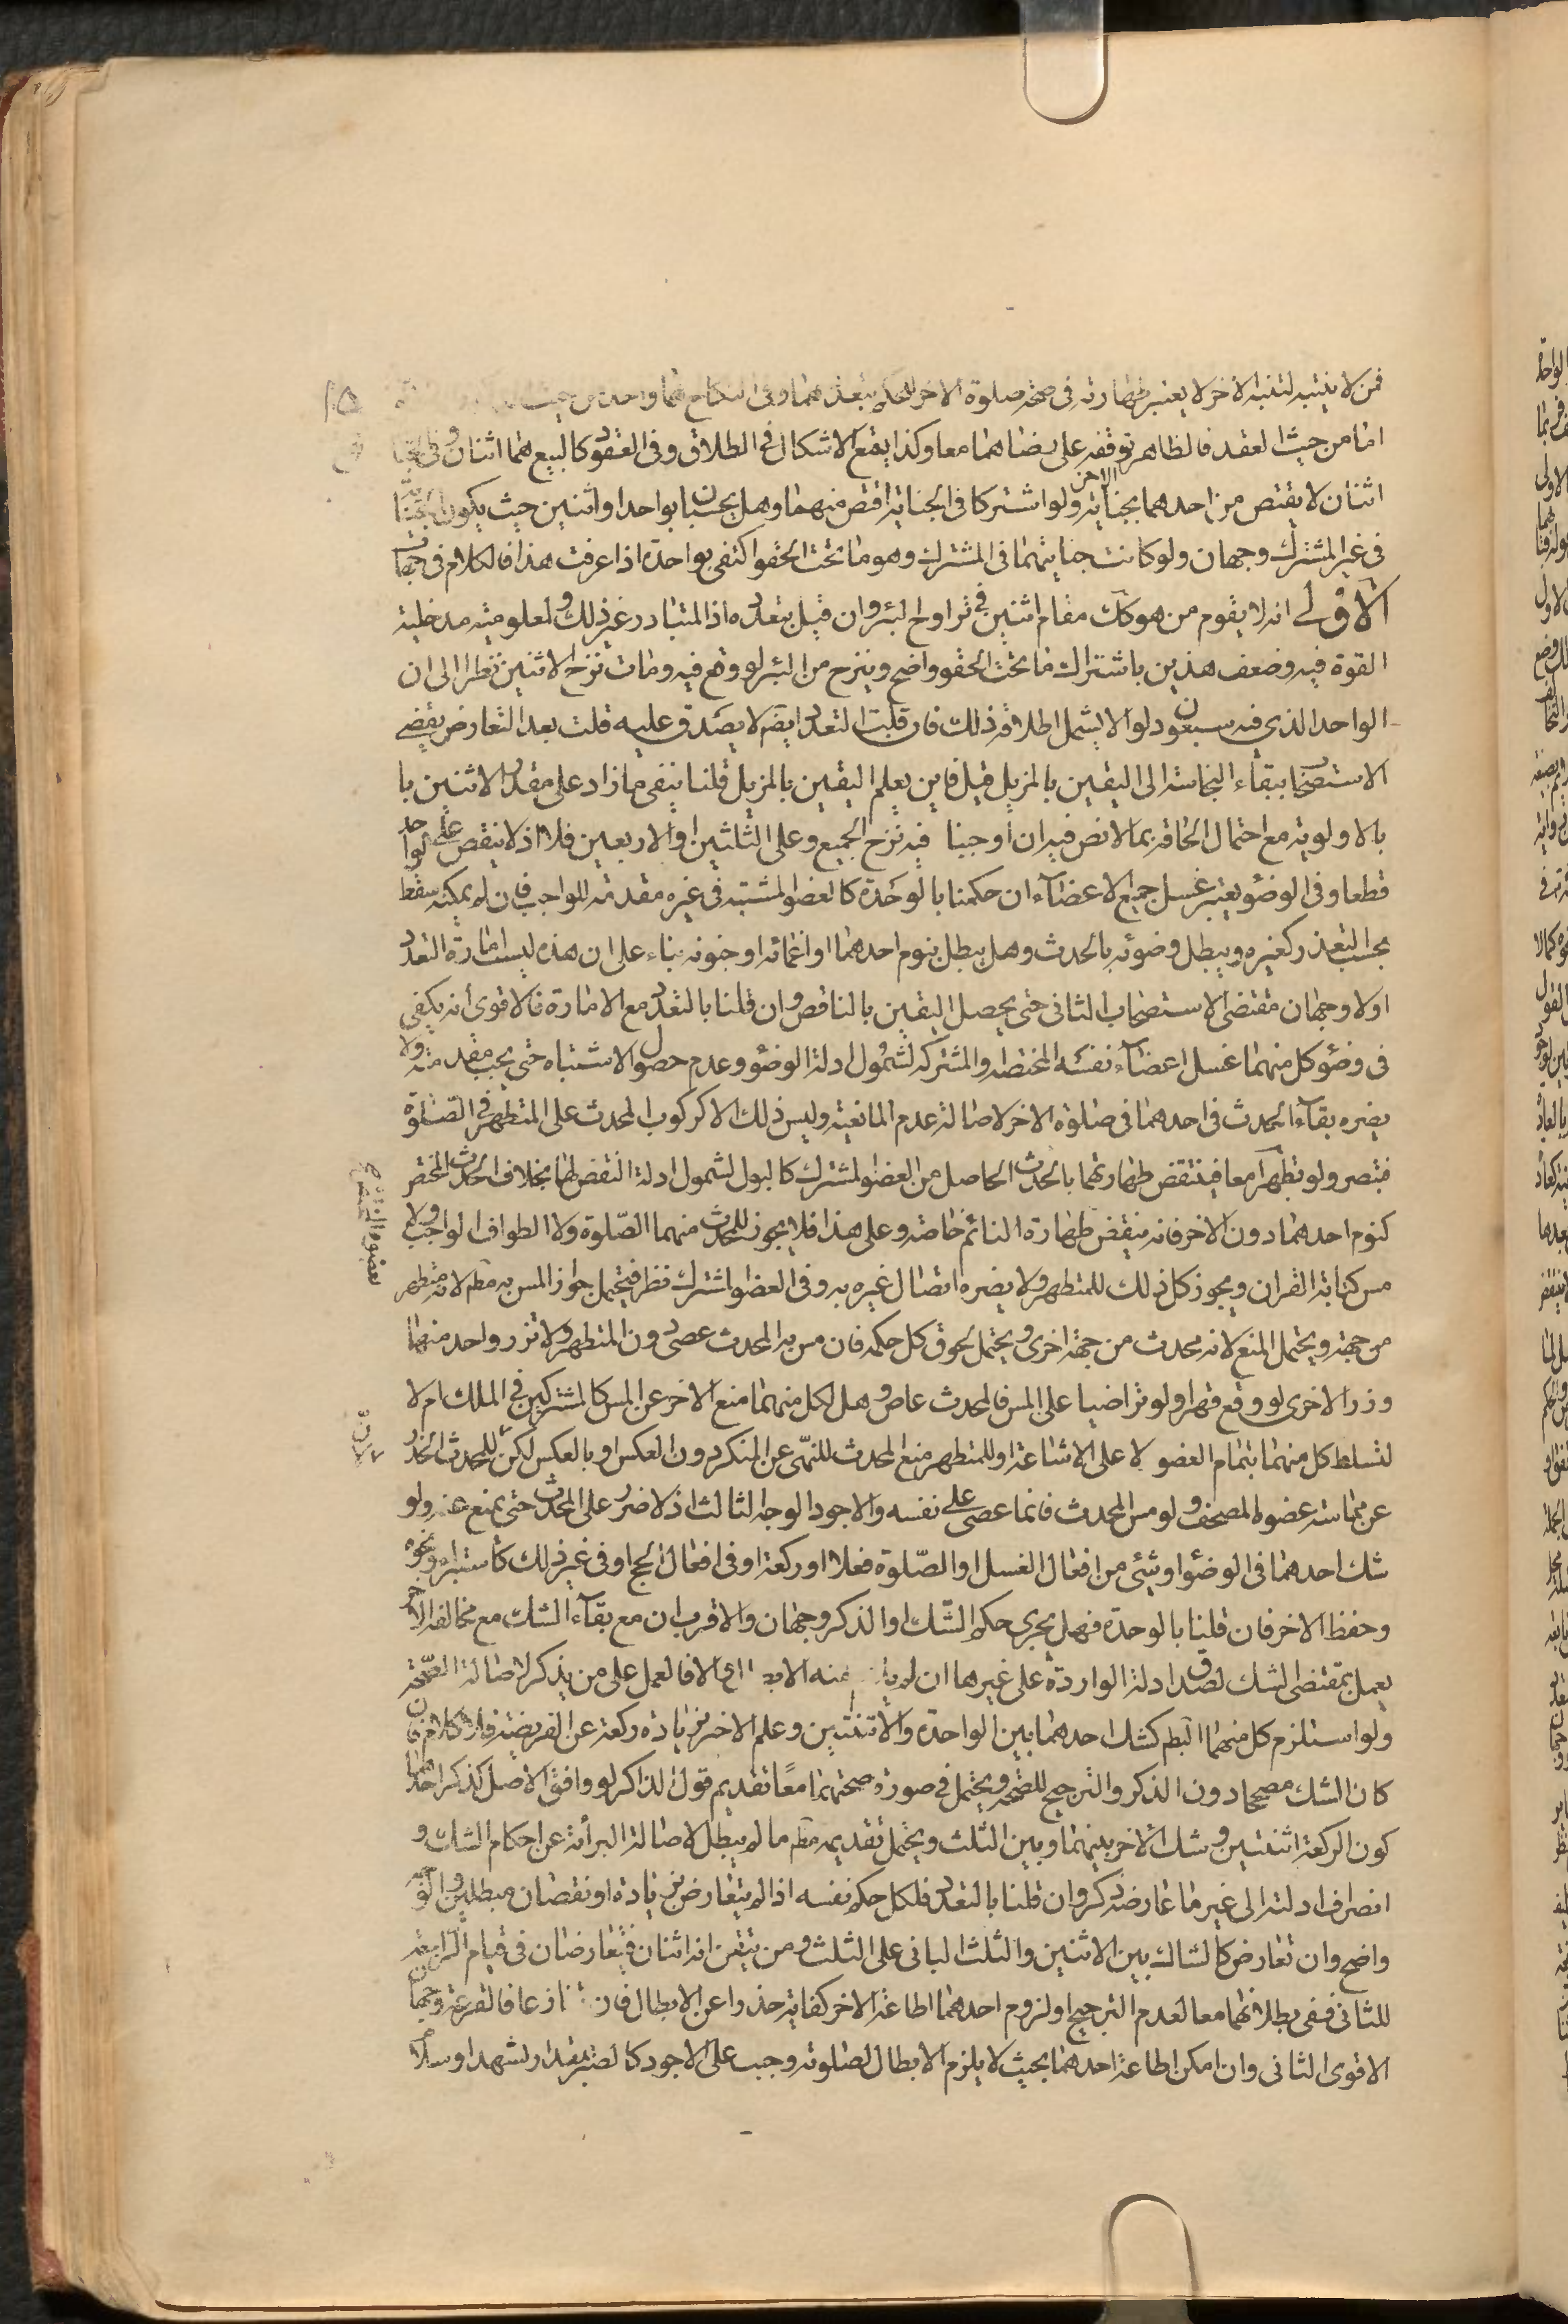 فمن لا ينتبه لتنبه الاخر لا يعتبر طهارته فى صحة صلوة الاخر للحكم بتعددهما وفى النكاح هما واحد من حيث
امّا من حيث العقد فالظاهر توقفه على رضاهما معا وكذا يقع الاشكال فى الطلاق وفى العقود كالبيع هما اثنان وفى
اثنان لا يقتص من احدهما بجناية الاخر ولو اشتركا فى الجناية اقتص منهما وهل يحسبان بواحد او اثنين حيث يكون الجناية
فى غير المشترك وجهان ولو كانت جنايتهما فى المشترك وهو ما تحت الحقو اكتفى بواحدة اذا عرفت هذا فالكلام فى
الاوّل انه لا يقوم من هو كك مقام اثنين فى تراوح البئر وان قيل بتعدده اذ المتبادر غير ذلك ولمعلومية مدخلية
القوة فيه وضعف هذين باشتراك ما تحت الحقو واضح وينزح من البئر لو وقع فيه ومات نزح الاثنين نظرا الى ان
الواحد الذى فيه سبعون دلوا لا يشمل اطلاقه ذلك فان قلت التعدد ايضا لا يصدق عليه قلت بعد التعارض يقضى
الاستصحاب ببقاء النجاسة الى اليقين بالمزيل قيل فاين يعلم اليقين بالمزيل قلنا ينفى ما زاد على مقدار الاثنين با
بالاولوية مع احتمال الحاقه بما لا نص فيه ان اوجبنا فيه نزح الجميع وعلى الثلثين او الاربعين فلا اذ لا ينقص على الواحد
قطعا وفى الوضوء يعتبر غسل جميع الاعضاء ان حكمنا بالوحدة كالعضو المشتبه فى غيره مقدمة للواجب فان لم يمكنه سقط
بحسب التعذر كغيره ويبطل وضوئه بالحدث وهل يبطل بنوم احدهما او اغمائه او جنونه بناء على ان هذه ليست امارة التعدد
اولا وجهان مقتضى الاستصحاب الثانى حتى يحصل اليقين بالناقض وان قلنا بالتعدد مع الامارة فالاقوى انه يكفى
فى وضوء كل منهما غسل اعضاء نفسه المختصة والمشتركة لشمول ادلة الوضوء وعدم حصول الاشتباه حتى يجب مقدمته ولا
يضره بقاء الحدث فى احدهما فى صلوة الاخر لاصالة عدم المانعية وليس ذلك الا كركوب المحدث على المتطهر فى الصلوة
فتبصر ولو تطهرا معا فينتقض طهارتهما بالحدث الحاصل من العضو المشترك كالبول لشمول ادلة النقض لهما بخلاف الحدث المختص
كنوم احدهما دون الاخر فانه ينقض طهارة النائم خاصة وعلى هذا فلا يجوز للمحدث منهما الصّلوة ولا الطواف الواجب ولا
مس كتابة القران ويجوز كل ذلك للمتطهر ولا يضره اتصال غيره به وفى العضو المشترك نظر فيحتمل جواز المس به مطم لانه متطهر
من جهة ويحتمل المنع لانه محدث من جهة اخرى ويحتمل لحوق كل حكمه فان مس به المحدث عصى دون المتطهر ولا تزر واحد منهما
وزر الاخرى لو وقع قهرا ولو تراضيا على المس فالمحدث عاص وهل لكل منهما منع الاخر عن المس كالمشتركين فى الملك ام لا
لتسلط كل منهما بتمام العضو لا على الاشاعة او للمتطهر منع المحدث للنهى عن المنكر دون العكس او بالعكس لكن للمحدث
عن مماسة عضوه المصحف ولو مس المحدث فانما عصى على نفسه والاجود الوجه الثالث اذ لا ضرر على المحدث حتى يمنع عنه ولو
شك احدهما فى الوضوء او شئ من افعال الغسل او الصّلوة فعلا او ركعة او فى افعال الحج او فى غير ذلك كاستبراء ونحوه
وحفظ الاخر فان قلنا بالوحدة فهل يجرى حكم الشّك او الذكر وجهان والاقرب ان مع بقاء الشك مع مخالفة الاخر
يعمل بمقتضى الشك لصدق ادلة الواردة على غيرها ان لم منه الا فالعمل على من يذكر لاصالة الصّحة
ولو استلزم كل منهما البطم كشك احدهما بين الواحدة والاثنتين وعلم الاخر بزيادة ركعة عن الفريضة فلا كلام
كان الشك مصححا دون الذكر والترجيح للصحة ويحتمل فى صورة صحتهما معًا تقديم قول الذاكر لو وافق الاصل كذكر احدهما
كون الركعة اثنتين وشك الاخر بينهما وبين الثلث ويحتمل تقديمه مطم ما لم يبطل لاصالة البرأة عن احكام الشك و
انصراف ادلته الى غير ما عارضه ذكر وان قلنا بالتعدد فلكل حكم نفسه اذا لم يتعارض بزيادة او نقصان مبطلين
واضح وان تعارض كالشاك بين الاثنين والثلث البانى على الثلث ومن تيقن انه اثنان فيتعارضان فى قيام الرابعة
للثانى ففى بطلانهما معا لعدم الترجيح او لزوم احدهما اطاعة الاخر كفاية حذرا عن الابطال فان تنازعا فالقرعة وجهان
الاقوى الثانى وان امكن اطاعة احدهما بحيث لا يلزم الابطال لصلوته وجب على الاجود كالصبر بقدر تشهد او سلام